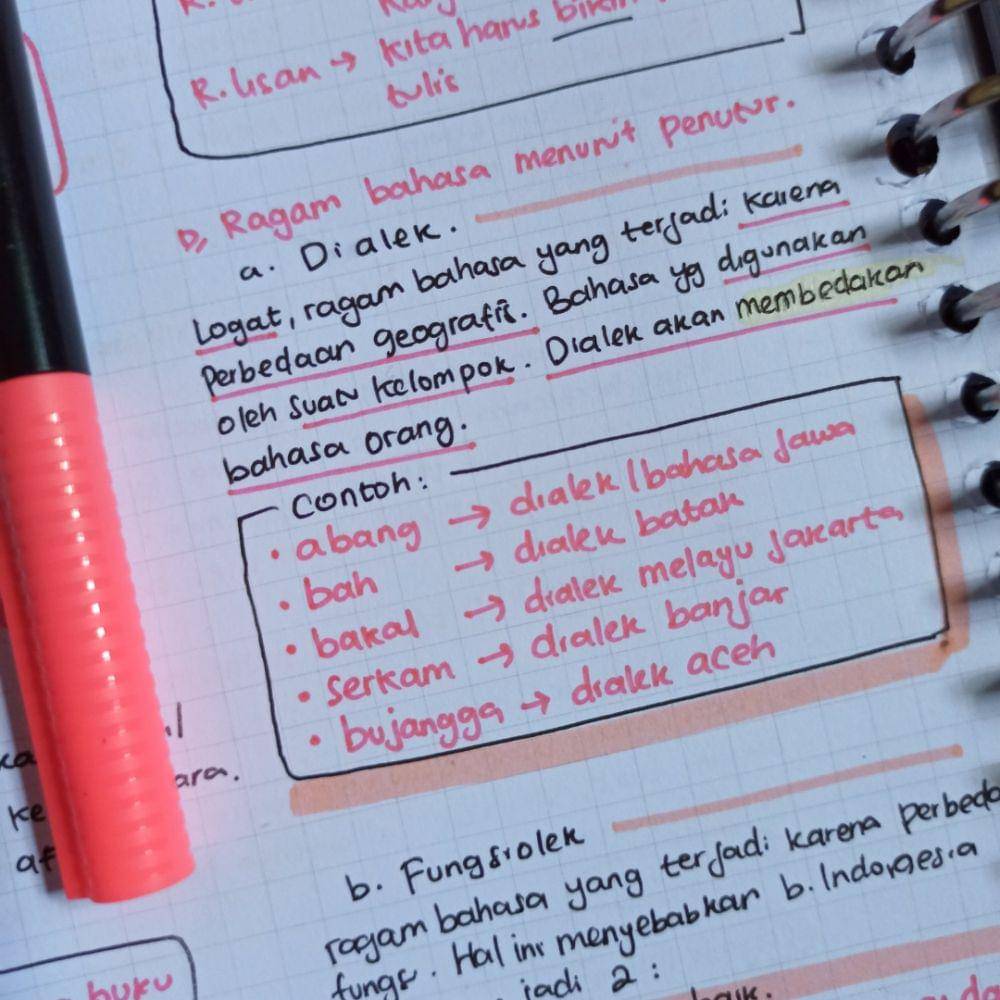 R. lisan → kita harus bikin
tulis
D, Ragam bahasa menurut penutur.
a. Dialek.
Logat, ragam bahasa yang terjadi karena
Perbedaan geografis. Bahasa yg digunakan
oleh suatu kelompok. Dialek akan membedakan
bahasa orang.
Contoh:
• abang → dialek/bahasa Jawa
• bah → dialek batak
• bakal → dialek melayu Jakarta
• serkam → dialek banjar
• bujangga → dialek aceh
ara.
ke
b. Fungsiolek
ragam bahasa yang terjadi karena
fungsi. Hal ini menyebabkan b. Indonesia
jadi 2:
buku